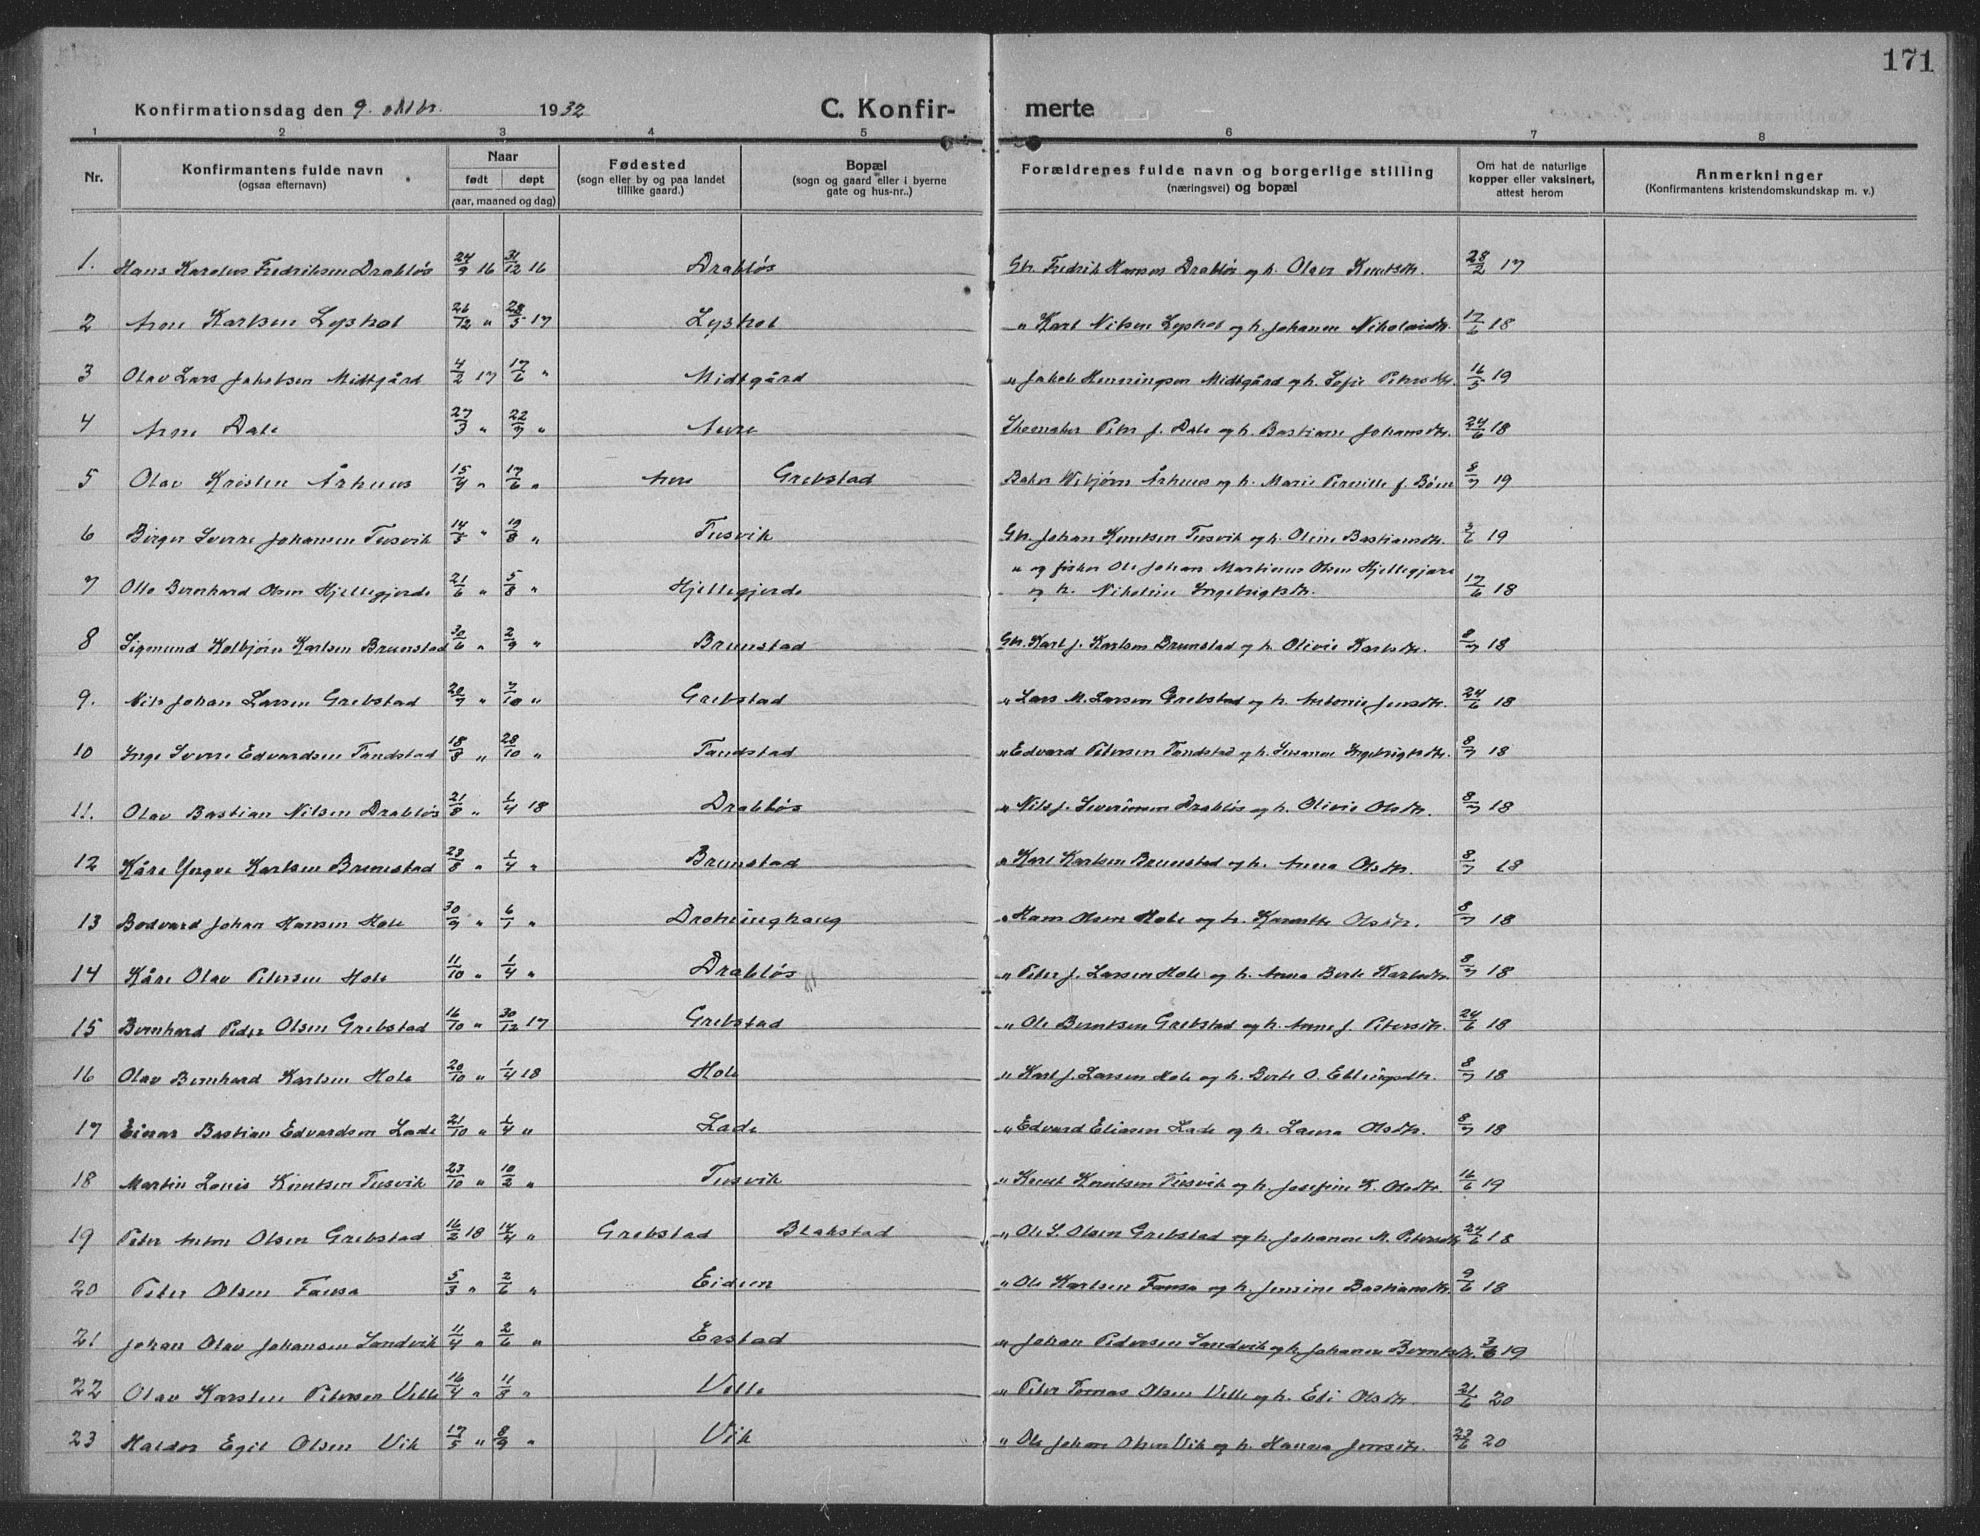 171
Konfirmationsdag den 9. oktbr. 1932 C. Konfir- merte
1 2 3 4 5 6 7 8
Nr. Konfirmantens fulde navn (ogsaa efternavn) Naar født døpt (aar, maaned og dag) Fødested (sogn eller by og paa landet tillike gaard.) Bopæl (sogn og gaard eller i byerne gate og hus-nr..) Forældrenes fulde navn og borgerlige stilling (næringsvei) og bopæl Om hat de naturlige kopper eller vaksinert, attest herom Anmerkninger (Konfirmantens kristendomskundskap m. v.)
1. Hans Karolus Fredriksen Drabløs 24/9 16 31/12 16 Drabløs Gbr. Fredrik Hansen Drabløs og h. Olave Knutsdtr. 28/2 17
2 Arne Karlsen Lyshol 26/12 " 28/5 17 Lyshol " Karl Nilsen Lyshol og h. Johanne Nikolaidtr. 17/6 18
3 Olav Lars Jakobsen Midtgård 4/2 17 17/6 " Midtgård " Jakob Henningsen Midtgård og h. Sofie Petersdtr. 16/5 19
4 Arne Dale 27/3 " 22/7 " Aure Skomaker Peter J. Dale og h. Bastiane Johansdtr. 24/6 18
5 Olav Kristen Århuus 15/4 " 17/6 " Aure Grebstad Baker Vebjørn Århuus og h. Marie Pernille f. Bøen 8/7 19
6 Birger Sverre Johansen Tusvik 14/5 " 19/8 " Tusvik Gbr. Johan Knutsen Tusvik og h. Oline Bastiansdtr. 3/6 19
7 Otto Bernhard Olsen Hjellegjerde 21/6 " 5/8 " Hjellegjerde " og fisker Ole Johan Martinus Olsen Hjellegjerde
og h. Nikoline Ingebrigtsdtr. 17/6 18
8 Sigmund Kolbjørn Karlsen Brunstad 30/6 " 2/9 " Brunstad Gbr. Karl J. Karlsen Brunstad og h. Olivie Karlsdtr. 8/7 18
9. Nils Johan Larsen Grebstad 20/7 " 7/10 " Grebstad " Lars M. Larsen Grebstad og h. Antonie Jensdtr. 24/6 18
10 Inge Sverre Edvardsen Tandstad 18/8 " 28/10 " Tandstad " Edvard Petersen Tandstad og h. Susanne Ingebrigtsdtr. 8/7 18
11. Olav Bastian Nilsen Drabløs 21/8 " 1/4 18 Drabløs " Nils J. Severinsen Drabløs og h. Olivie Olsdtr. 8/7 18
12 Kåre Yngve Karlsen Brunstad 28/8 " 1/4 " Brunstad " Karl Karlsen Brunstad og h. Anna Olsdtr. 8/7 18
13 Bodvard Johan Hansen Hole 30/9 " 6/7 " Droninghaug " Hans Olsen Hole og h. Olsdtr. 8/7 18
14 Kåre Olav Petersen Hole 11/10 " 1/4 " Drabløs " Peter J. Larsen Hole og h. Anna Berte Karlsdtr. 8/7 18
15 Bernhard Peder Olsen Grebstad 16/10 " 30/12 17 Grebstad " Ole Berntsen Grebstad og h. Anne J. Petersdtr. 24/6 18
16 Olav Bernhard Karlsen Hole 20/10 " 1/4 18 Hole " Karl J. Larsen Hole og h. Berte O. Ellingsdtr. 8/7 18
17 Einar Bastian Edvardsen Lade 21/10 " 1/4 " Lade " Edvard Eliasen Lade og h. Laura Olsdtr. 8/7 18
18 Martin Louis Knutsen Tusvik 23/10 " 10/2 " Tusvik " Knut Knutsen Tusvik og h. Josefine K. Olsdtr. 16/6 19
19 Peter Anton Olsen Grebstad 16/2 18 14/4 " Grebstad Blakstad " Ole S. Olsen Grebstad og h. Johanne M. Petersdtr. 24/6 18
20 Peter Olsen Fausa 5/3 " 2/6 " Eidem " Ole Karlsen Fausa og h. Jensine Bastiansdtr. 9/6 18
21 Johan Olav Johansen Sandvik 11/4 " 2/6 " Erstad " Johan Pedersen Sandvik og h. Johanne Berntsdtr. 3/6 19
22 Olav Karsten Petersen Velle 16/4 " 11/8 " Velle " Peter Tomas Olsen Velle og h. Eli Olsdtr. 21/6 20
23 Haldor Egil Olsen Vik 17/5 " 8/9 " Vik " Ole Johan Olsen Vik og h. Hanna Jensdtr. 23/6 20